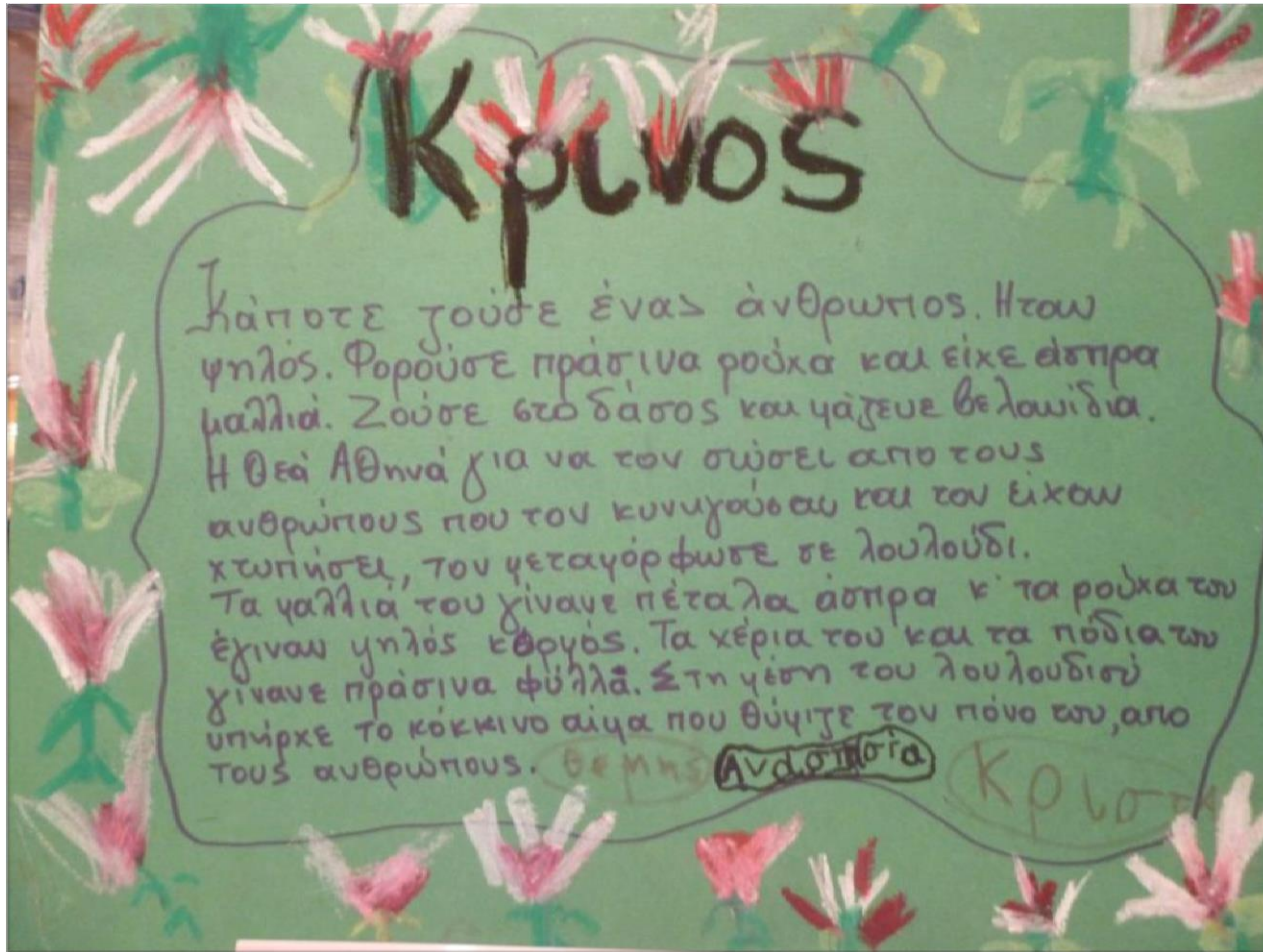 Κρινος
Κάποτε ζούσε ένας άνθρωπος. Ηταν
ψηλός. Φορούσε πράσινα ρούχα και είχε άσπρα
μαλλιά. Ζούσε στο δάσος και μάζευε βελανίδια.
Η Θεά Αθηνά για να τον σώσει απο τους
ανθρώπους που τον κυνηγούσαν και τον είχαν
χτυπήσει, τον μεταμόρφωσε σε λουλούδι.
Τα μαλλιά του γίνανε πέταλα άσπρα κ' τα ρούχα του
έγιναν ψηλός κορμός. Τα χέρια του και τα πόδια του
γίνανε πράσινα φύλλα. Στη μέση του λουλουδιού
υπήρχε το κόκκινο αίμα που θύμιζε τον πόνο του, απο
τους ανθρώπους. Θεμης Αναστασία